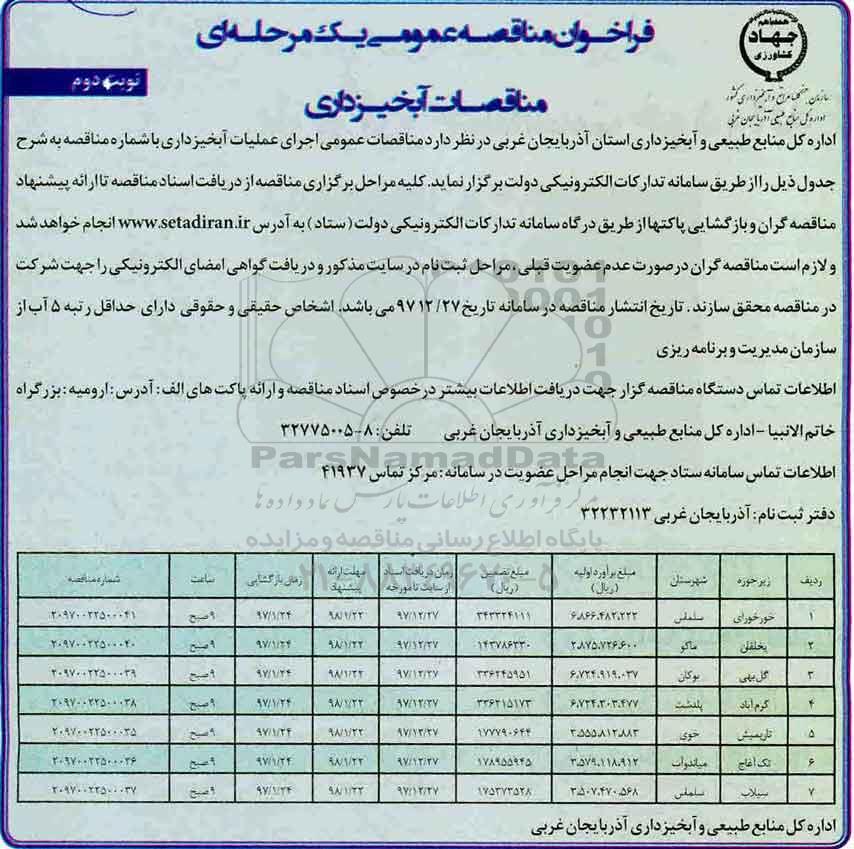 فراخوان مناقصه عمومی یک مرحله‌ای
همه با هم
جهاد
کشاورزی
نوبت دوم
مناقصات آبخیزداری
اداره کل منابع طبیعی و آبخیزداری استان آذربایجان غربی در نظر دارد مناقصات عمومی اجرای عملیات آبخیزداری با شماره مناقصه به شرح
جدول ذیل را از طریق سامانه تدارکات الکترونیکی دولت برگزار نماید. کلیه مراحل برگزاری مناقصه از دریافت اسناد مناقصه تا ارائه پیشنهاد
مناقصه گران و بازگشایی پاکتها از طریق درگاه سامانه تدارکات الکترونیکی دولت (ستاد) به آدرس www.setadiran.ir انجام خواهد شد
و لازم است مناقصه گران در صورت عدم عضویت قبلی، مراحل ثبت نام در سایت مذکور و دریافت گواهی امضای الکترونیکی را جهت شرکت
در مناقصه محقق سازند. تاریخ انتشار مناقصه در سامانه تاریخ ۹۷۱۲/۲۷ می باشد. اشخاص حقیقی و حقوقی دارای حداقل رتبه ۵ آب از
سازمان مدیریت و برنامه ریزی
اطلاعات تماس دستگاه مناقصه گزار جهت دریافت اطلاعات بیشتر در خصوص اسناد مناقصه و ارائه پاکت های الف: آدرس: ارومیه: بزرگراه
خاتم الانبیا - اداره کل منابع طبیعی و آبخیزداری آذربایجان غربی تلفن: ۸-۳۲۷۷۵۰۰۵
ParsNamadData
اطلاعات تماس سامانه ستاد جهت انجام مراحل عضویت در سامانه: مرکز تماس ۴۱۹۳۷
مرکز فرآوری اطلاعات پارس نماد داده ها
دفتر ثبت نام: آذربایجان غربی ۳۲۲۳۲۱۱۳
پایگاه اطلاع رسانی مناقصه و مزایده
ردیف زیرحوزه شهرستان مبلغ برآورد اولیه (ریال) مبلغ تضمین (ریال) زمان دریافت اسناد از سایت تا مورخه مهلت ارائه پیشنهاد زمان بازگشایی ساعت شماره مناقصه
۱ خورخورای سلماس ۶.۸۶۶.۴۸۲.۲۲۲ ۳۴۳۳۲۴۱۱۱ ۹۷/۱۲/۲۷ ۹۸/۱/۲۲ ۹۷/۱/۲۴ ۹ صبح ۲۰۹۷۰۰۲۲۵۰۰۰۴۱
۲ یخلقان ماکو ۲.۸۷۵.۷۲۶.۶۰۰ ۱۴۳۷۸۶۳۳۰ ۹۷/۱۲/۲۷ ۹۸/۱/۲۲ ۹۷/۱/۲۴ ۹ صبح ۲۰۹۷۰۰۲۲۵۰۰۰۴۰
۳ گل بهی بوکان ۶.۷۲۴.۹۱۹.۰۳۷ ۳۳۶۲۴۵۹۵۱ ۹۷/۱۲/۲۷ ۹۸/۱/۲۲ ۹۷/۱/۲۴ ۹ صبح ۲۰۹۷۰۰۲۲۵۰۰۰۳۹
۴ کرم آباد پلدشت ۶.۷۲۴.۳۰۳.۴۷۷ ۳۳۶۲۱۵۱۷۳ ۹۷/۱۲/۲۷ ۹۸/۱/۲۲ ۹۷/۱/۲۴ ۹ صبح ۲۰۹۷۰۰۲۲۵۰۰۰۳۸
۵ تاریمیش خوی ۳.۵۵۵.۸۱۲.۸۸۳ ۱۷۷۷۹۰۶۴۴ ۹۷/۱۲/۲۷ ۹۸/۱/۲۲ ۹۷/۱/۲۴ ۹ صبح ۲۰۹۷۰۰۲۲۵۰۰۰۳۵
۶ تک آغاج میاندوآب ۳.۵۷۹.۱۱۸.۹۱۲ ۱۷۸۹۵۵۹۴۵ ۹۷/۱۲/۲۷ ۹۸/۱/۲۲ ۹۷/۱/۲۴ ۹ صبح ۲۰۹۷۰۰۲۲۵۰۰۰۳۶
۷ سیلاب سلماس ۳.۵۰۷.۴۷۰.۵۶۸ ۱۷۵۳۷۳۵۲۸ ۹۷/۱۲/۲۷ ۹۸/۱/۲۲ ۹۷/۱/۲۴ ۹ صبح ۲۰۹۷۰۰۲۲۵۰۰۰۳۷
اداره کل منابع طبیعی و آبخیزداری آذربایجان غربی